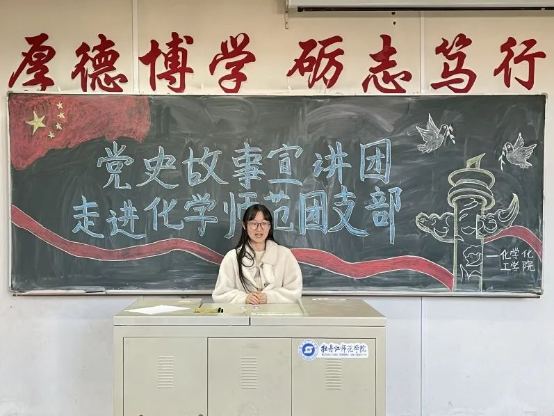 厚德博学 砺志笃行
党史故事宣讲团
走进化学师范团支部
化学化
工学院
牡丹江师范学院